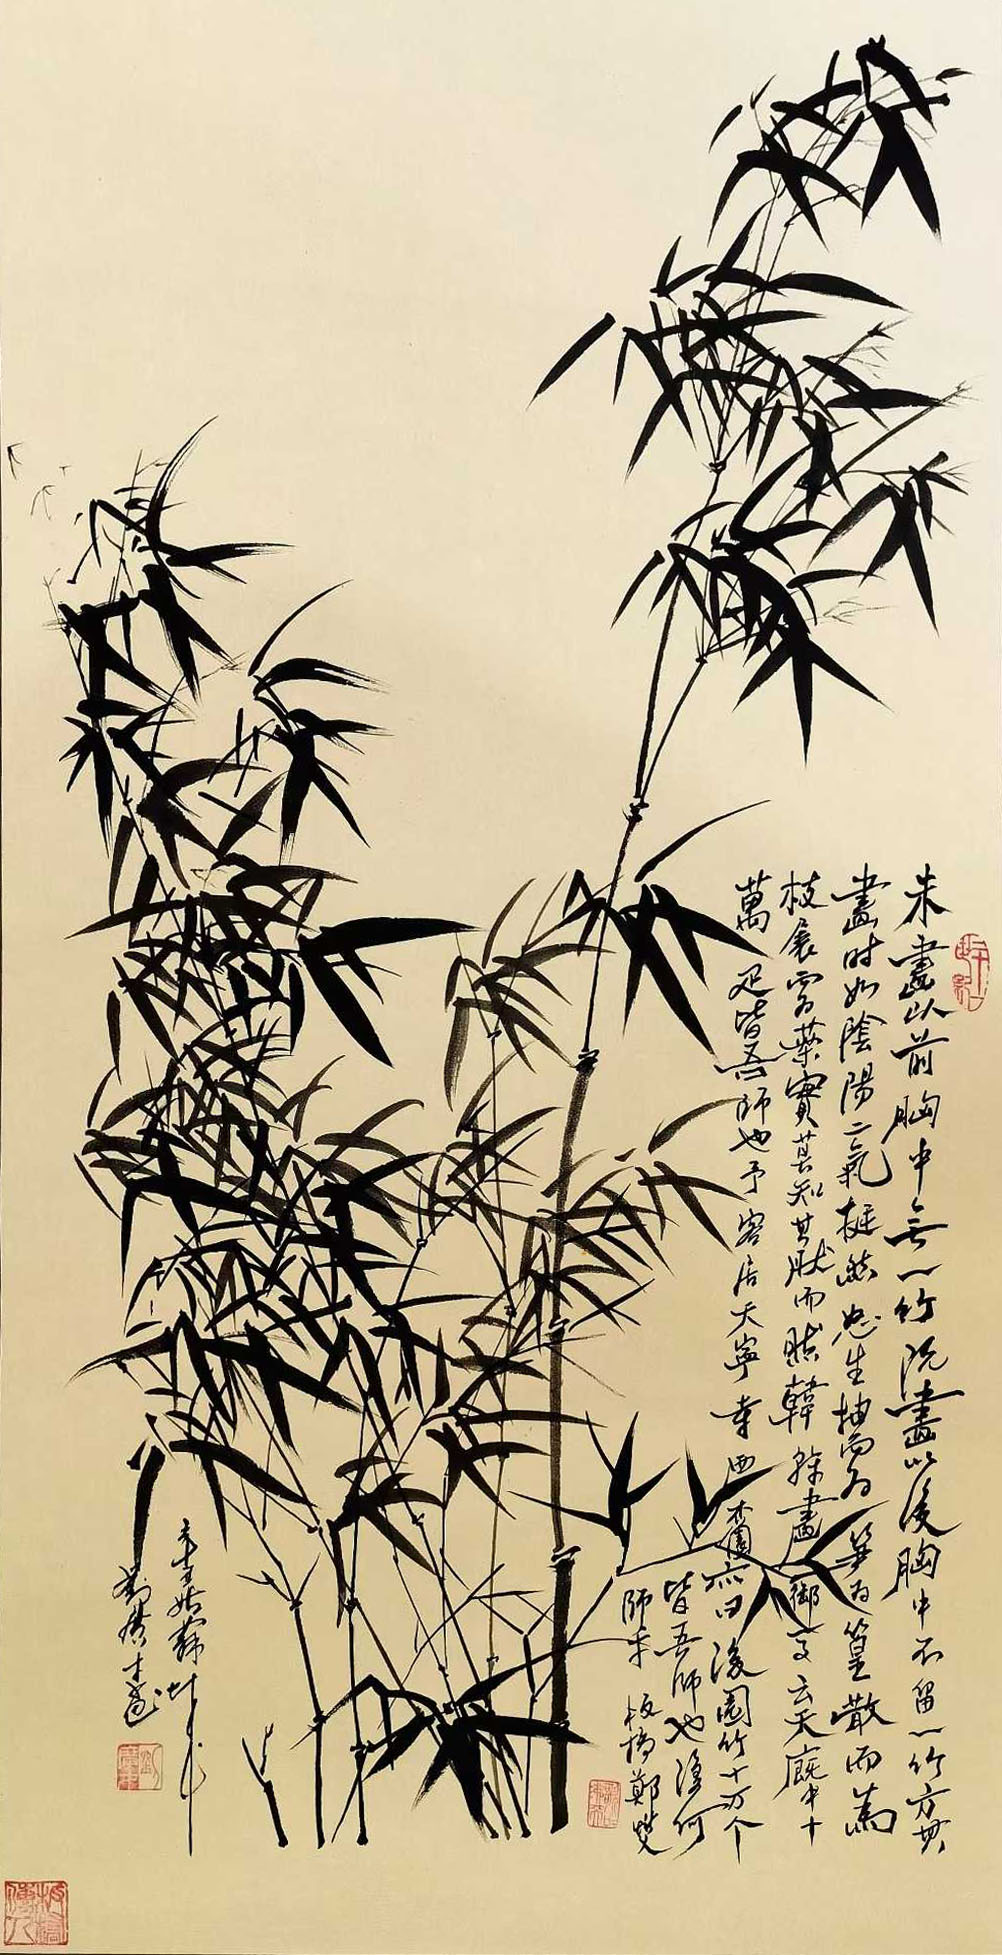 未畫以前胸中無一竹既畫以後胸中不留一竹方其
畫时如陰陽二氣挺然怒生抽而为笋为篁散而為
枝展而为葉實莫知其然而然韓幹畫御馬云天廐中十
萬疋皆吾師也予客居天寧寺西杏園亦曰後園竹十万个
皆吾師也復何
師乎 板橋鄭燮
姑蘇